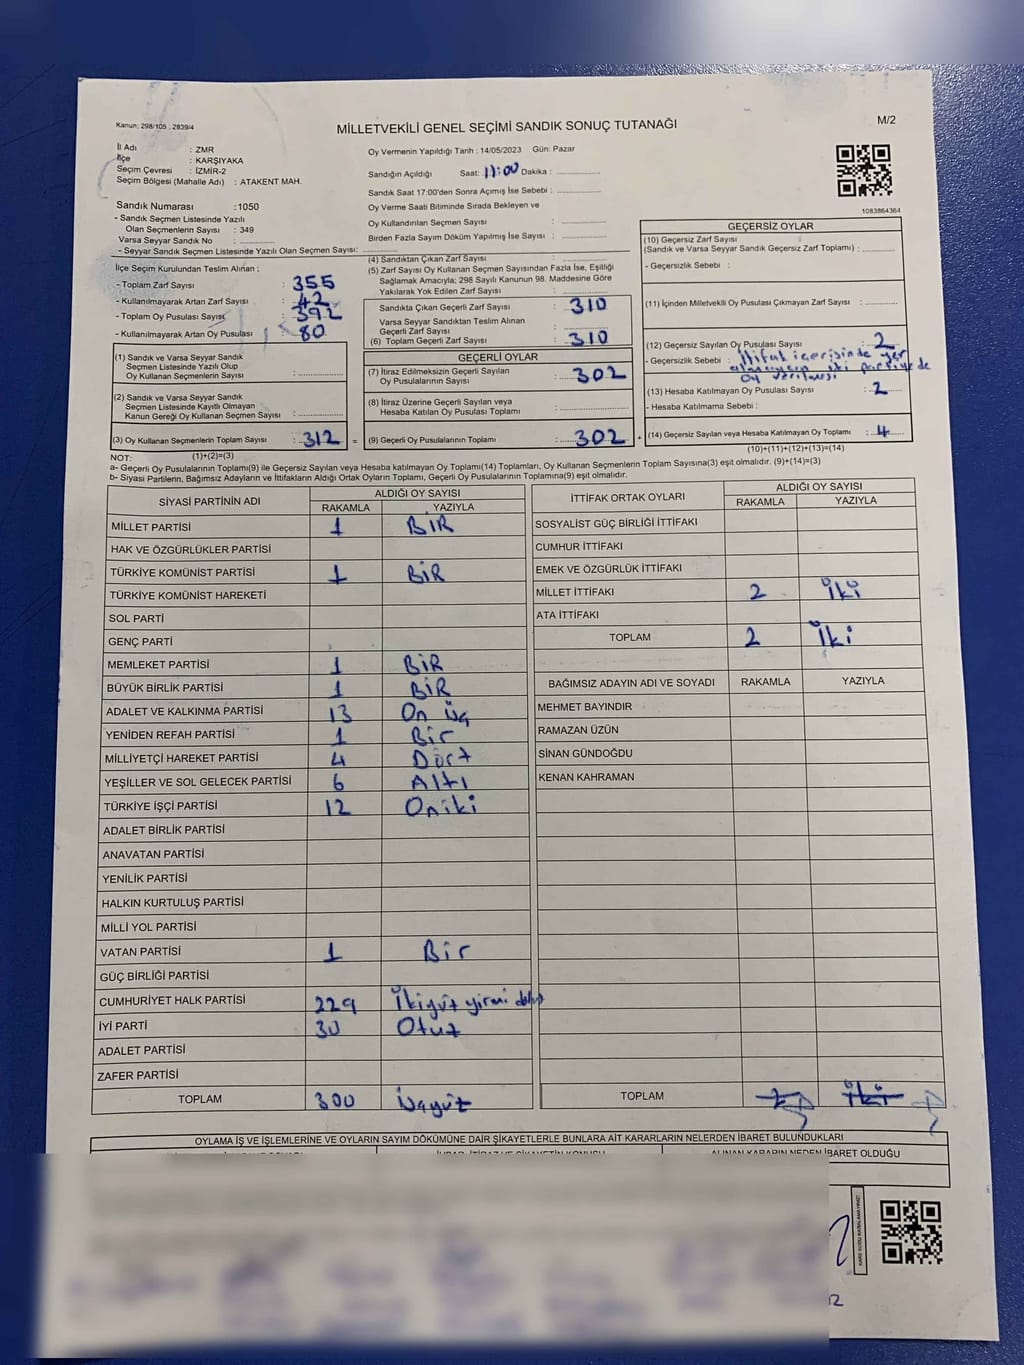 Kanun: 298/105 , 2839/4
MİLLETVEKİLİ GENEL SEÇİMİ SANDIK SONUÇ TUTANAĞI
M/2
İl Adı : ZMR
İlçe : KARŞIYAKA
Seçim Çevresi : İZMİR-2
Seçim Bölgesi (Mahalle Adı) : ATAKENT MAH.
Oy Vermenin Yapıldığı Tarih : 14/05/2023 Gün: Pazar
Sandığın Açıldığı Saat: 17:00 Dakika : ..............
Sandık Saat 17:00'den Sonra Açımış İse Sebebi : ..............
Oy Verme Saati Bitiminde Sırada Bekleyen ve
Oy Kullandırılan Seçmen Sayısı : ..............
Birden Fazla Sayım Döküm Yapılmış İse Sayısı : ..............
1083864364
Sandık Numarası :1050
- Sandık Seçmen Listesinde Yazılı
Olan Seçmenlerin Sayısı : 349
Varsa Seyyar Sandık No : ..............
- Seyyar Sandık Seçmen Listesinde Yazılı Olan Seçmen Sayısı: ..............
İlçe Seçim Kurulundan Teslim Alınan ;
- Toplam Zarf Sayısı : 355
- Kullanılmayarak Artan Zarf Sayısı : 42
- Toplam Oy Pusulası Sayısı : 392
- Kullanılmayarak Artan Oy Pusulası : 80
(1) Sandık ve Varsa Seyyar Sandık
Seçmen Listesinde Yazılı Olup
Oy Kullanan Seçmenlerin Sayısı : ..............
(2) Sandık ve Varsa Seyyar Sandık
Seçmen Listesinde Kayıtlı Olmayan
Kanun Gereği Oy Kullanan Seçmen Sayısı : ..............
(3) Oy Kullanan Seçmenlerin Toplam Sayısı : 312 =
(1)+(2)=(3)
(4) Sandıktan Çıkan Zarf Sayısı : ..............
(5) Zarf Sayısı Oy Kullanan Seçmen Sayısından Fazla İse, Eşitliği
Sağlamak Amacıyla; 298 Sayılı Kanunun 98. Maddesine Göre
Yakılarak Yok Edilen Zarf Sayısı : ..............
Sandıkta Çıkan Geçerli Zarf Sayısı : 310
Varsa Seyyar Sandıktan Teslim Alınan
Geçerli Zarf Sayısı : ..............
(6) Toplam Geçerli Zarf Sayısı : 310
GEÇERLİ OYLAR
(7) İtiraz Edilmeksizin Geçerli Sayılan
Oy Pusulalarının Sayısı : 302
(8) İtiraz Üzerine Geçerli Sayılan veya
Hesaba Katılan Oy Pusulası Toplamı : ..............
(9) Geçerli Oy Pusulalarının Toplamı : 302 +
GEÇERSİZ OYLAR
(10) Geçersiz Zarf Sayısı
(Sandık ve Varsa Seyyar Sandık Geçersiz Zarf Toplamı) : ..............
- Geçersizlik Sebebi :
(11) İçinden Milletvekili Oy Pusulası Çıkmayan Zarf Sayısı : ..............
(12) Geçersiz Sayılan Oy Pusulası Sayısı : 2
- Geçersizlik Sebebi : İttifak içerisinde yer
almayan iki partiye de
oy verilmesi
(13) Hesaba Katılmayan Oy Pusulası Sayısı : 2
- Hesaba Katılmama Sebebi :
(14) Geçersiz Sayılan veya Hesaba Katılmayan Oy Toplamı : 4
(10)+(11)+(12)+(13)=(14)
NOT:
a- Geçerli Oy Pusulalarının Toplamı(9) ile Geçersiz Sayılan veya Hesaba katılmayan Oy Toplamı(14) Toplamları, Oy Kullanan Seçmenlerin Toplam Sayısına(3) eşit olmalıdır. (9)+(14)=(3)
b- Siyasi Partilerin, Bağımsız Adayların ve İttifakların Aldığı Ortak Oyların Toplamı, Geçerli Oy Pusulalarının Toplamına(9) eşit olmalıdır.
SİYASİ PARTİNİN ADI ALDIĞI OY SAYISI
RAKAMLA YAZIYLA
MİLLET PARTİSİ 1 BİR
HAK VE ÖZGÜRLÜKLER PARTİSİ
TÜRKİYE KOMÜNİST PARTİSİ 1 BİR
TÜRKİYE KOMÜNİST HAREKETİ
SOL PARTİ
GENÇ PARTİ
MEMLEKET PARTİSİ 1 BİR
BÜYÜK BİRLİK PARTİSİ 1 BİR
ADALET VE KALKINMA PARTİSİ 13 On Üç
YENİDEN REFAH PARTİSİ 1 Bir
MİLLİYETÇİ HAREKET PARTİSİ 4 Dört
YEŞİLLER VE SOL GELECEK PARTİSİ 6 Altı
TÜRKİYE İŞÇİ PARTİSİ 12 Oniki
ADALET BİRLİK PARTİSİ
ANAVATAN PARTİSİ
YENİLİK PARTİSİ
HALKIN KURTULUŞ PARTİSİ
MİLLİ YOL PARTİSİ
VATAN PARTİSİ 1 Bir
GÜÇ BİRLİĞİ PARTİSİ
CUMHURİYET HALK PARTİSİ 229 İkiyüz yirmi dokuz
İYİ PARTİ 30 Otuz
ADALET PARTİSİ
ZAFER PARTİSİ
TOPLAM 300 Üçyüz
İTTİFAK ORTAK OYLARI ALDIĞI OY SAYISI
RAKAMLA YAZIYLA
SOSYALİST GÜÇ BİRLİĞİ İTTİFAKI
CUMHUR İTTİFAKI
EMEK VE ÖZGÜRLÜK İTTİFAKI
MİLLET İTTİFAKI 2 İki
ATA İTTİFAKI
TOPLAM 2 İki
BAĞIMSIZ ADAYIN ADI VE SOYADI RAKAMLA YAZIYLA
MEHMET BAYINDIR
RAMAZAN ÜZÜN
SİNAN GÜNDOĞDU
KENAN KAHRAMAN
TOPLAM İki
OYLAMA İŞ VE İŞLEMLERİNE VE OYLARIN SAYIM DÖKÜMÜNE DAİR ŞİKAYETLERLE BUNLARA AİT KARARLARIN NELERDEN İBARET BULUNDUKLARI
ALINAN KARARIN NEDEN İBARET OLDUĞU